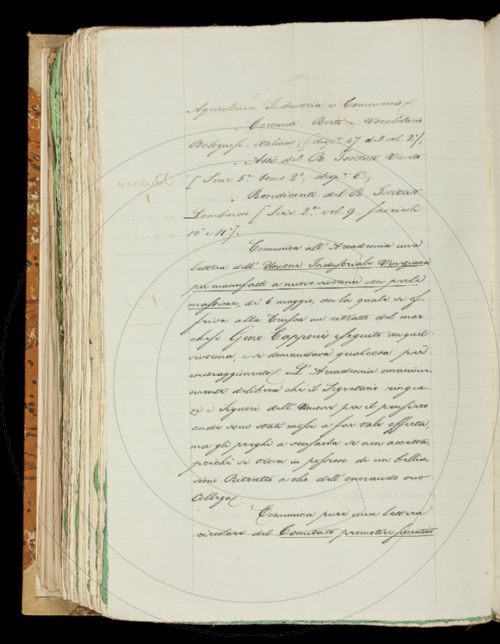 Agricoltura, Industria e Commercio).
Coronedi Berti - Vocabolario
Bolognese italiano, (disp.ª 47 del vol. 2º).
Atti del R. Istituto Veneto
(Serie 5ª tomo 2º, disp.ª 6ª).
Rendiconti del R. Istituto
Lombardo (Serie 2ª vol. 9, fascicoli
10 e 11).
Comunica all'Accademia una
lettera dell'Unione Industriale Veneziana
pei manufatti a nuovo sistema con perle
di 6 maggio, con la quale si of-
friva alla Crusca un ritratto del mar-
chese Gino Capponi eseguito in quel
sistema, e si domandava qualcosa per
incoraggiamento. L'Accademia unanime-
mente delibera che il Segretario ringra-
zi i Signori dell'Unione per il pensiero
onde sono stati mossi a far tale offerta,
ma gli preghi a scusarla se non accetta,
poichè si trova in possesso di un bellis-
simo Ritratto a che dell'onorando suo
Collega.
Comunica pure una lettera
circolare del Comitato promotore